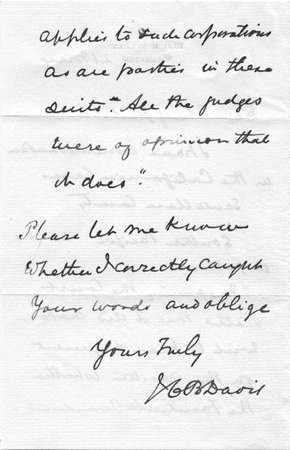 applies to such corporations
as are parties in these
suits". All the judges
were of opinion that
it does".
Please let me know
Whether I correctly caught
Your words and oblige
Yours Truly
J C B Davis